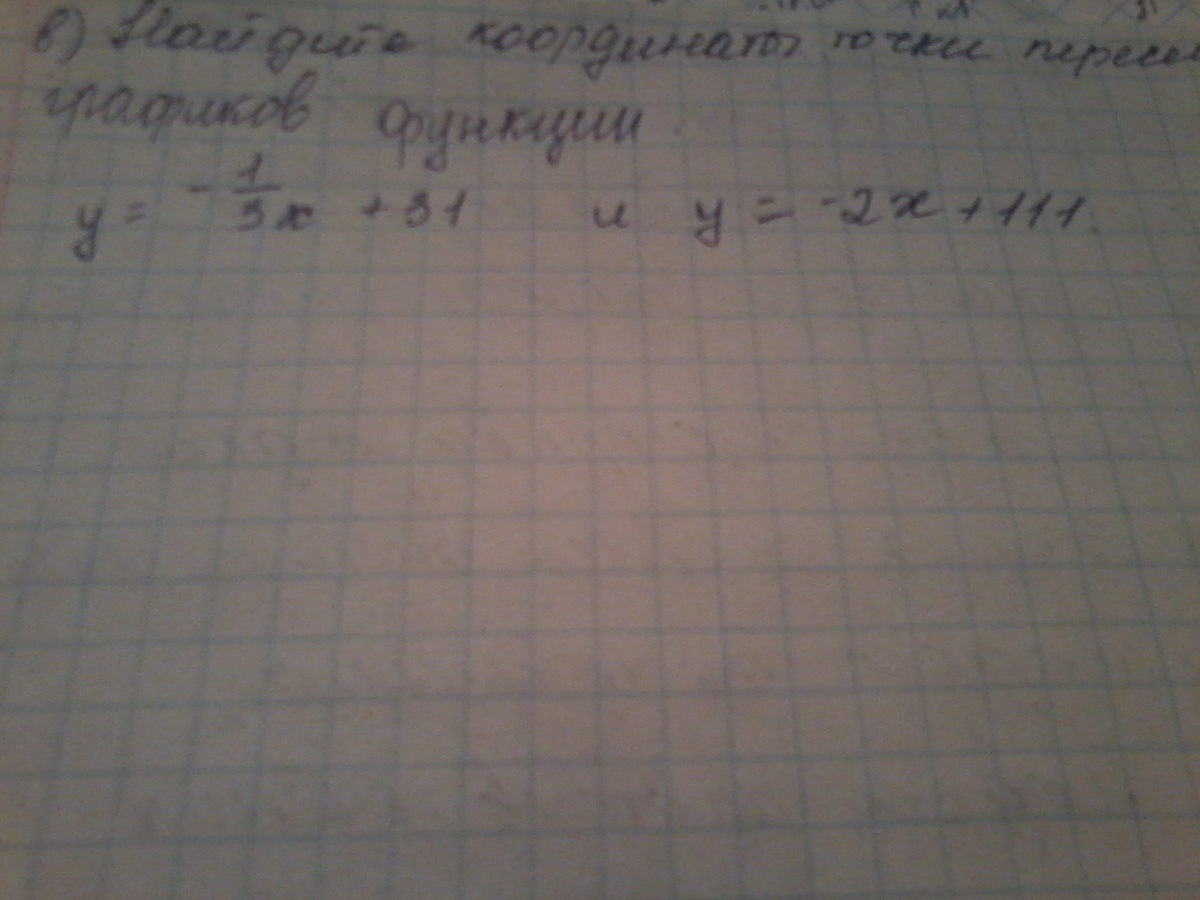 в) Найдите координаты точки пересеч
графиков функции.
y = -1/3x + 31 и y = -2x + 111.